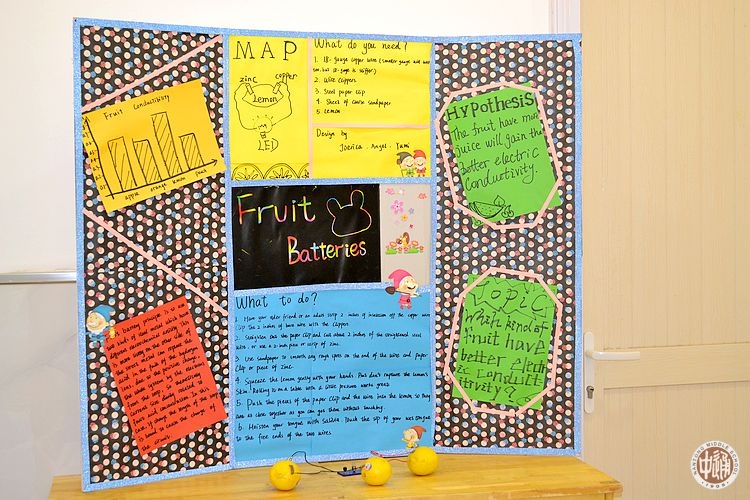 Fruit Conductibility
apple orange lemon
MAP
zinc copper
Lemon
LED
What do you need?
1. 18-gauge copper wire (smaller gauge will work
too, but 18-gauge is stiffer)
2. Wire clippers
3. Steel paper clip
4. Sheet of coarse sandpaper
5. Lemon
Design by
Joerica . Angel . Yumi
HYPothesis
The fruit have more
juice will gain the
better electric
conductivity.
Fruit
Batteries
What to do?
1. Have your older friend or an adult strip 2 inches of insulation off the copper wire
Clip the 2 inches of bare wire with the clippers.
2. Straighten out the paper clip and cut about 2 inches of the straightened steel
wire, or use a 2-inch piece or strip of zinc.
3. Use sandpaper to smooth any rough spots on the end of the wire and paper
Clip or piece of zinc.
4. Squeeze the lemon gently with your hands. But don't rupture the lemon's
skin. Rolling it on a table with a little pressure works great.
5. Push the pieces of the paper clip and the wire into the lemon so they
are as close together as you can get them without touching.
6. Moisten your tongue with saliva. Touch the tip of your wet tongue
to the free ends of the two wires
Topic
Which kind of
fruit have
better elect
ric conduct
tivity?
battery principle is to use
two kinds of
different electrochemical activity
中通
1908